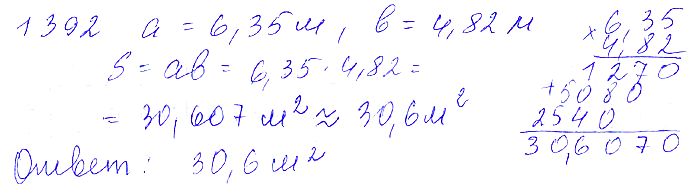 1392 a = 6,35 м, в = 4,82 м
S = ав = 6,35 · 4,82 =
= 30,607 м² ≈ 30,6 м²
Ответ: 30,6 м²
× 6,35
4,82
1270
+ 5080
2540
30,6070